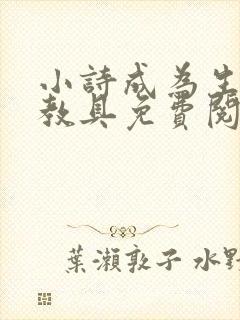 小詩成為生
教具免費閱
葉瀨敦子 水野